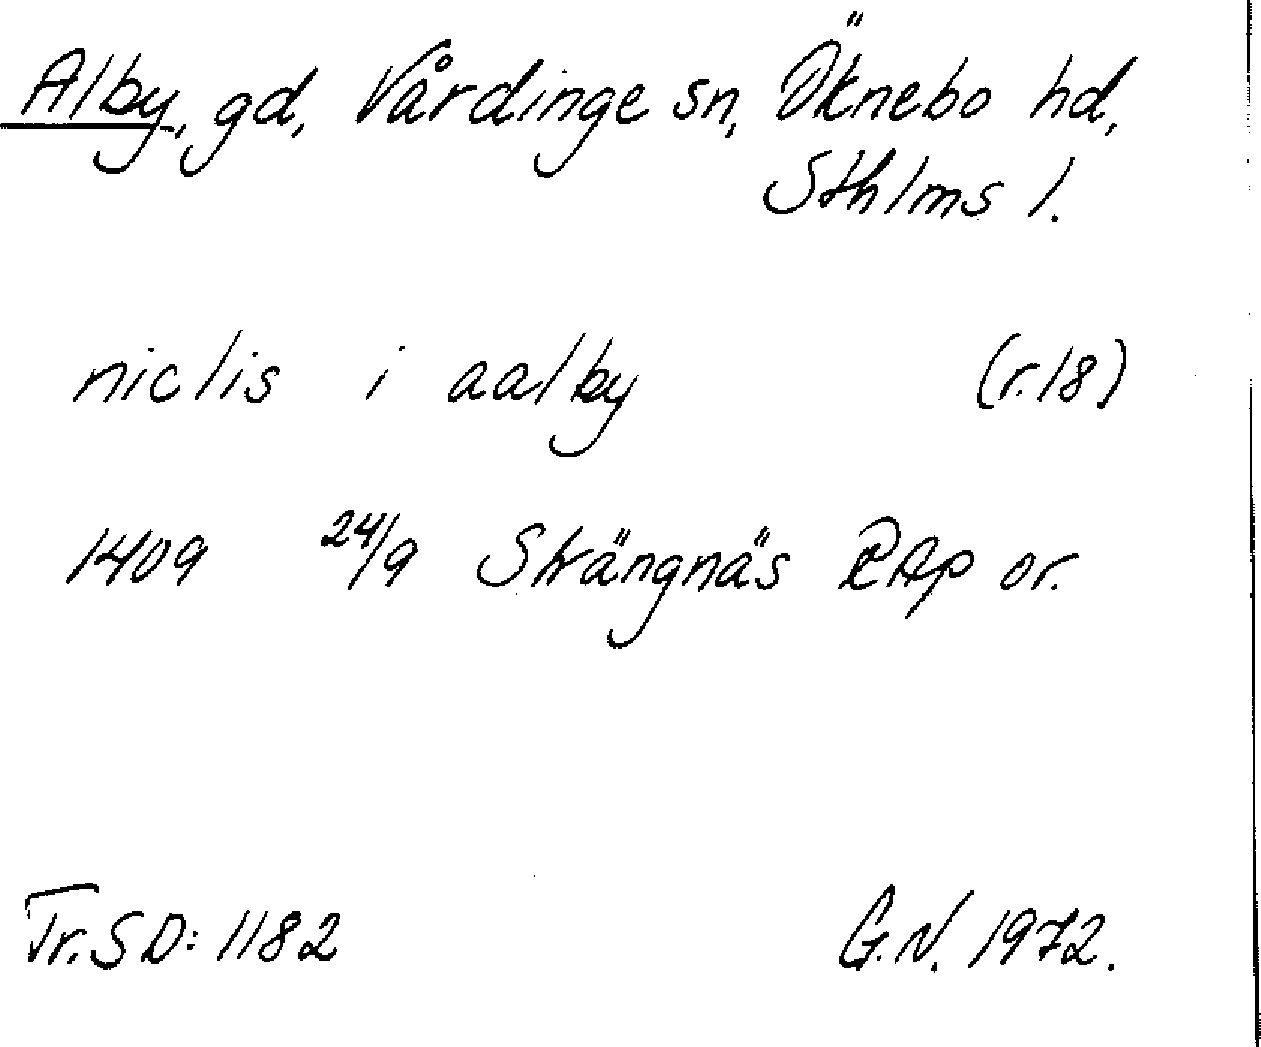 Alby, gd, Vårdinge sn, Öknebo hd,
Sthlms l.
niclis i aalby (r.18)
1409 24/9 Strängnäs RAp or.
Tr. SD: 1182 G.N. 1972.